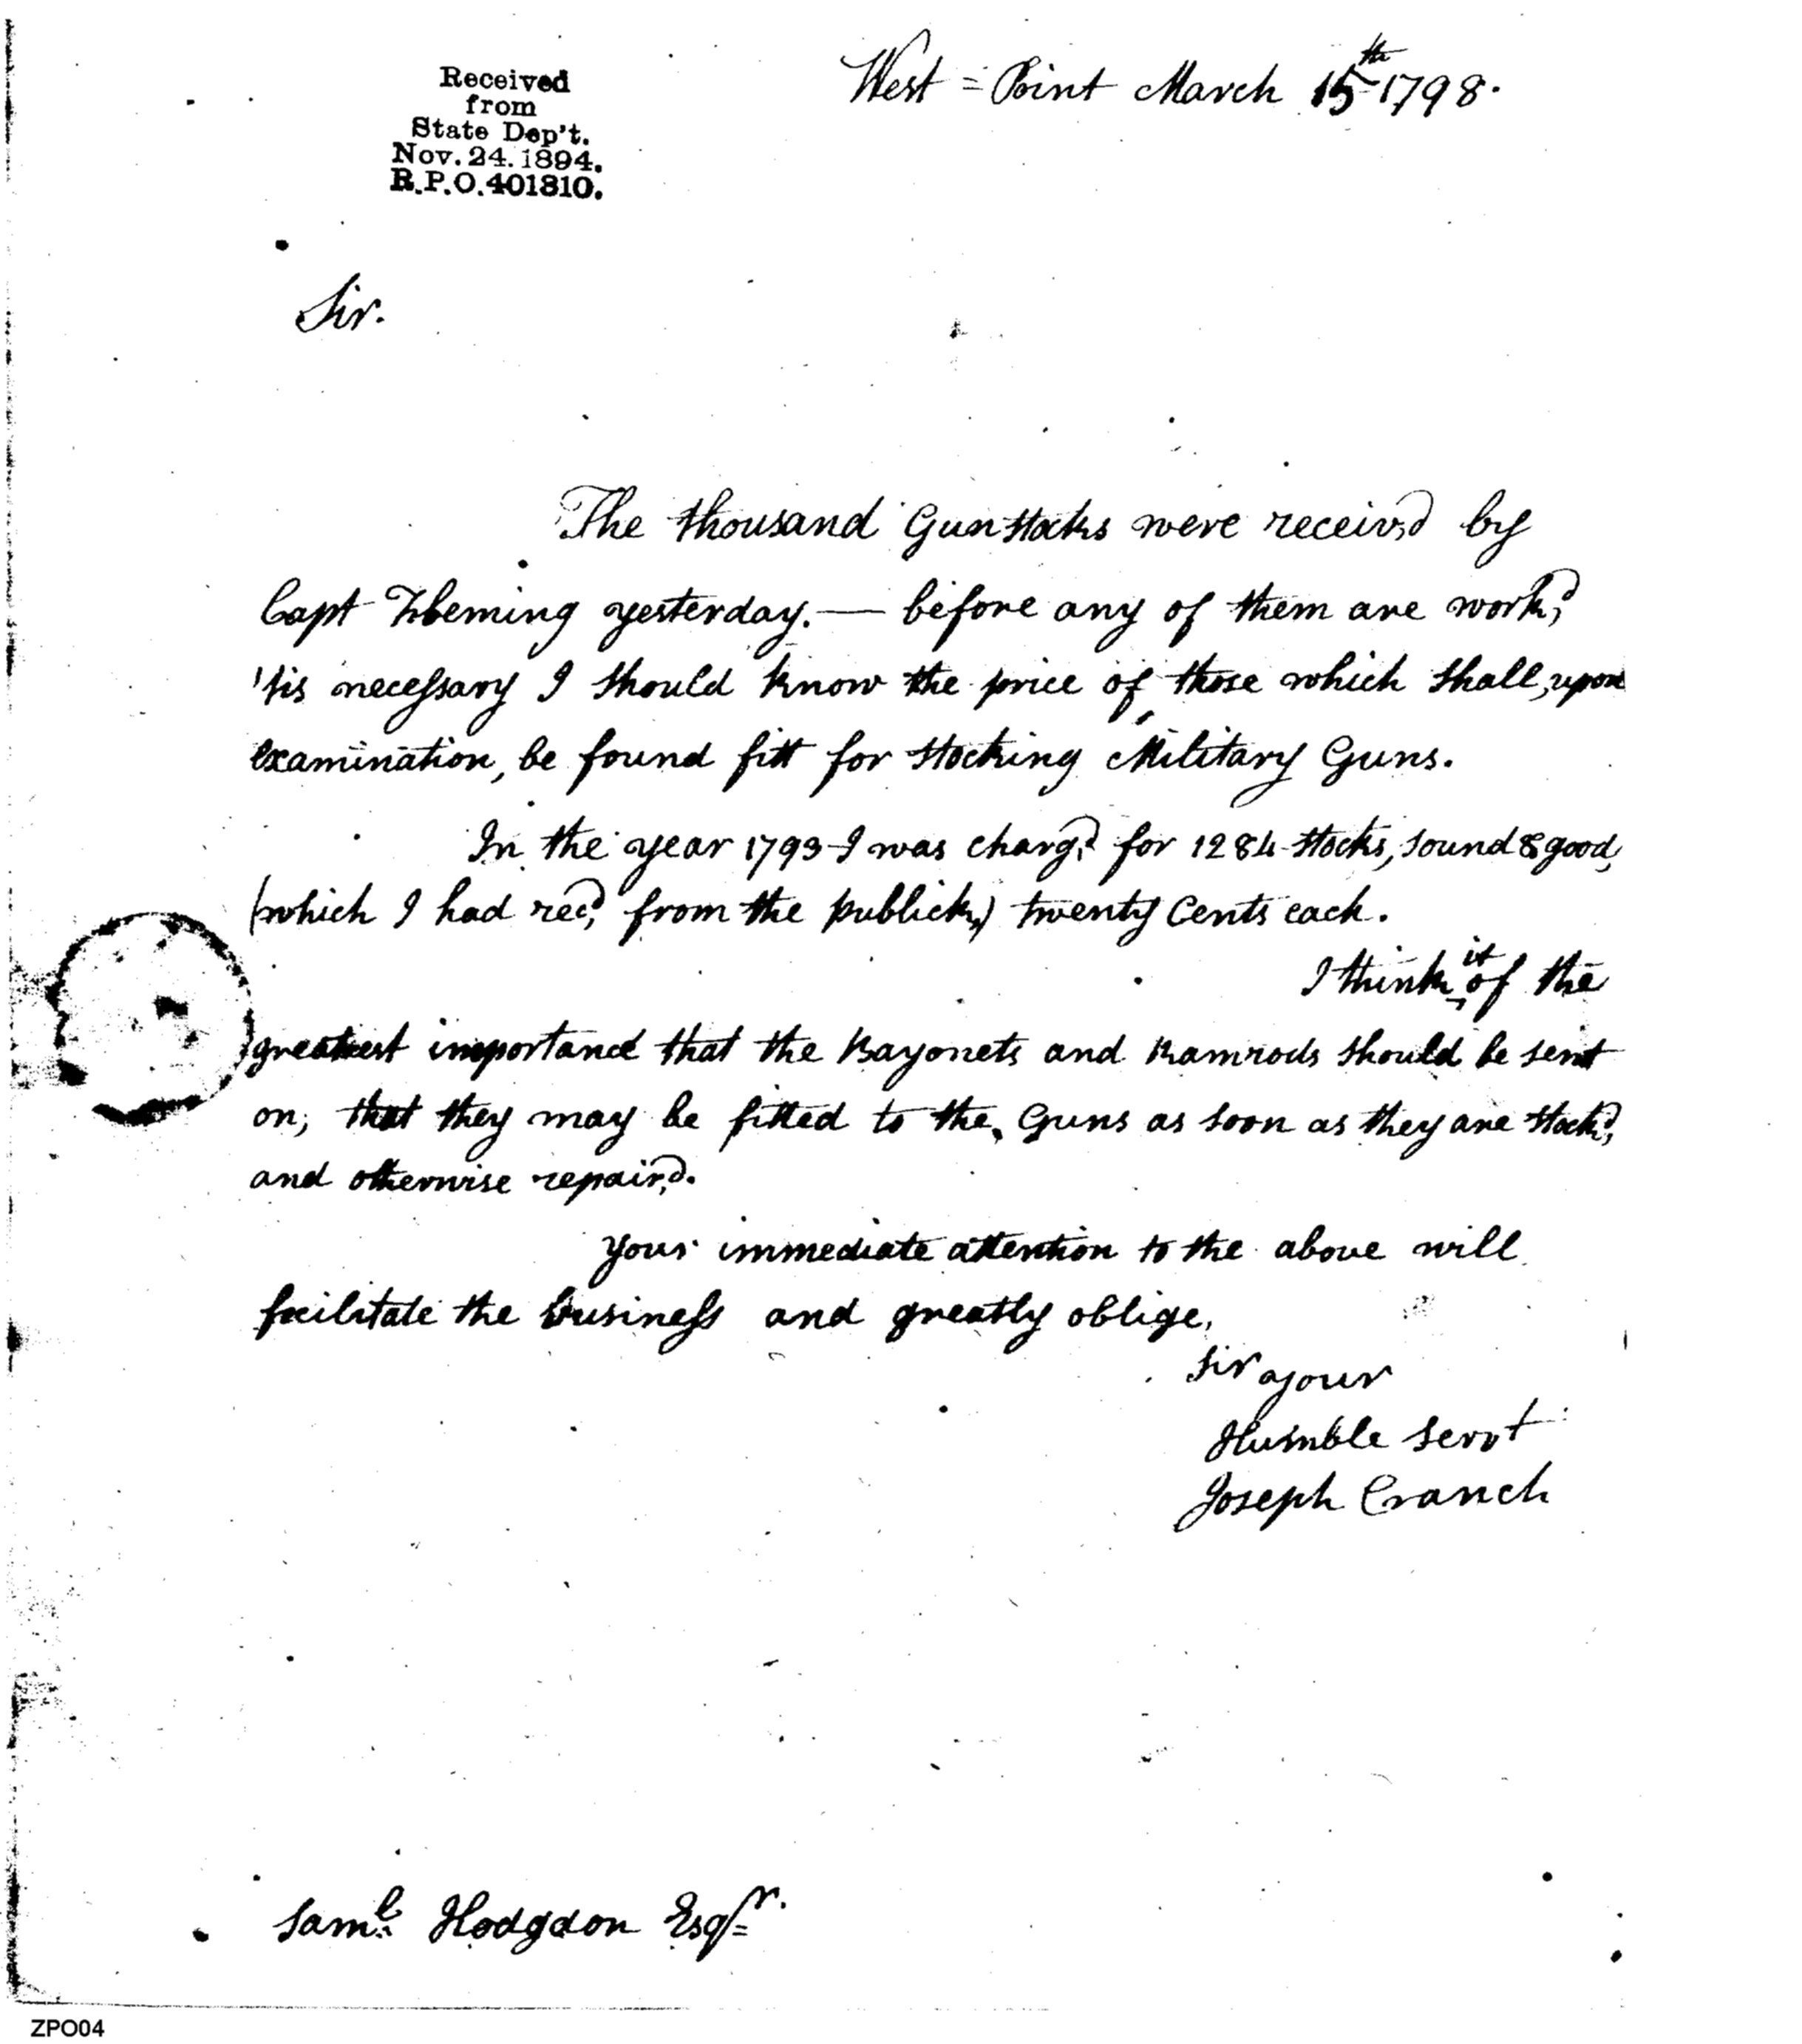 Received
from
State Dep't.
Nov. 24. 1894.
R.P.O. 401810.
West = Point March 15th 1798.
Sir.
The thousand Gunstocks were receiv,d by
Capt Flleming yesterday. — before any of them are work,d
'tis necessary I should know the price of those which shall, upon
examination, be found fitt for stocking Military Guns.
In the year 1793 I was charg,d for 1284 stocks, sound & good,
(which I had rec,d from the publick,) twenty Cents each.
I think it of the
greatest importance that the Bayonets and Ramrods should be sent
on, that they may be fitted to the Guns as soon as they are stock,d,
and otherwise repair,d.
Your immediate attention to the above will
facilitate the business and greatly oblige,
Sir your
Humble Servt
Joseph Cranch
Saml. Hodgdon Esqr.
ZPO04